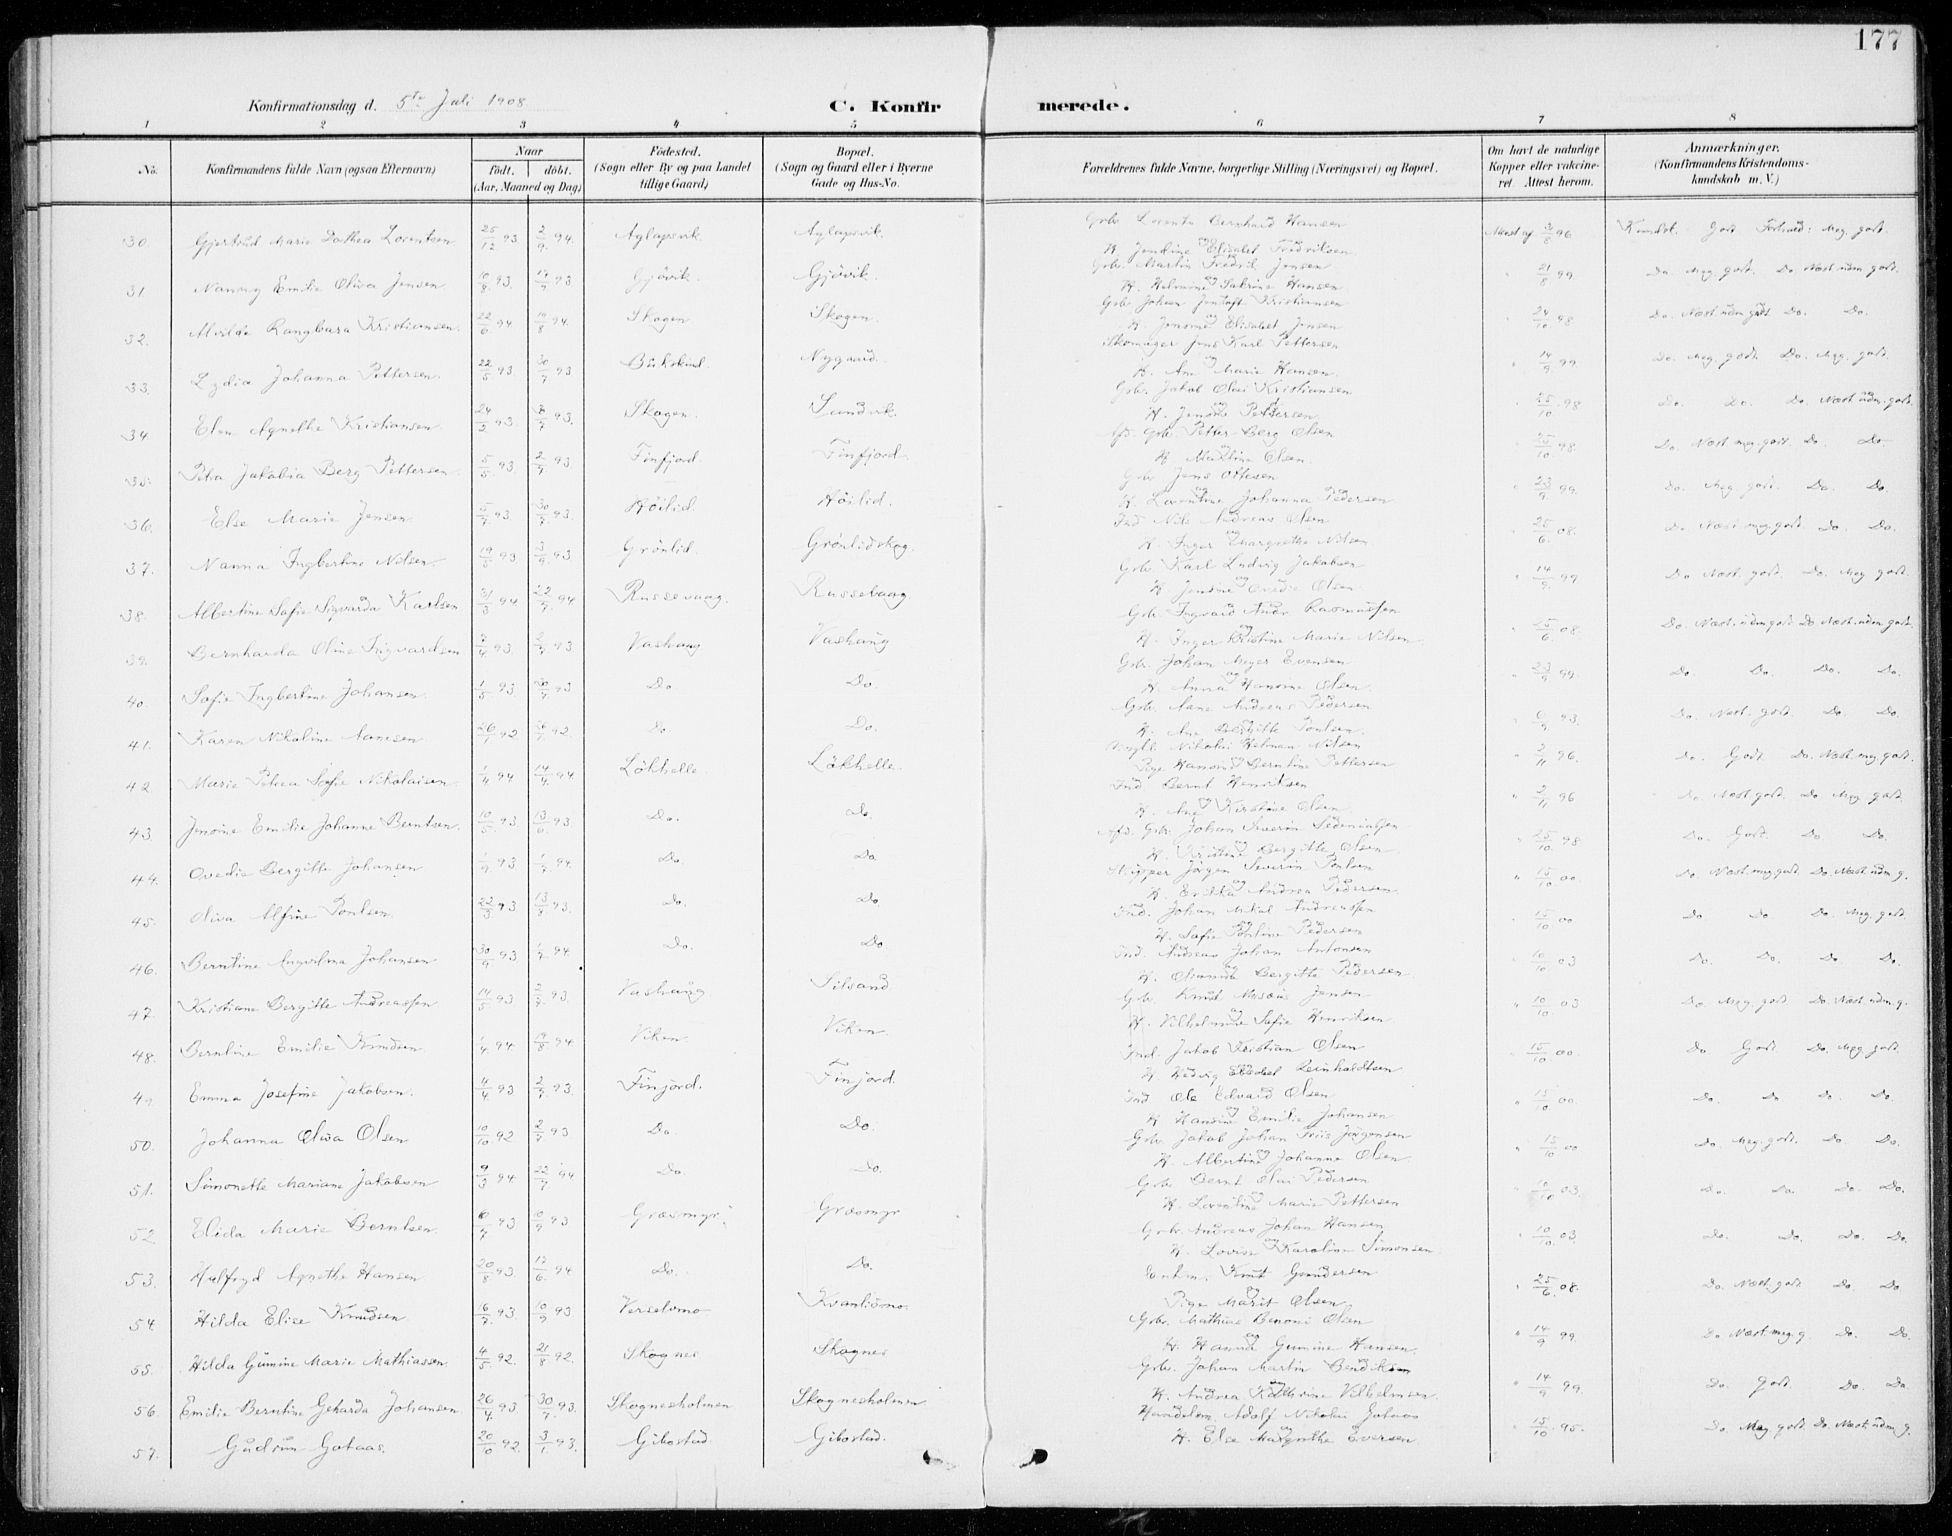 177
Konfirmationsdag d. 5te Juli 1908
C. Konfirmerede.
1 2 3 4 5 6 7 8
No. Konfirmandens fulde Navn (ogsaa Efternavn) Naar født, døbt. (Aar, Maaned og Dag) Fødested. (Sogn eller By og paa Landet tillige Gaard) Bopæl. (Sogn og Gaard eller i Byerne Gade og Hus-No. Forældrenes fulde Navne, borgerlige Stilling (Næringsvei) og Bopæl. Om havt de naturlige Kopper eller vakcineret. Attest herom. Anmærkninger. (Konfirmandens Kristendomskundskab m. V.)
30. Gjertrud Marie Dorthea Lorentsen 25/12 93 2/9 94. Aglapsvik. Aglapsvik. Gbr. Lorents Bernhard Hansen
H. Jensine Elisabet Fredriksen 96 Kundsk. Godt Forhold: Meg. godt.
31. Nanny Emilie Oliva Jensen 10/8 93 17/9 93 Gjövik. Gjövik. Gbr. Martin Fredrik Jensen
H. Helmine Sabrine Hansen 21/8 99. Do Meg. godt. Do. Næst. udm. godt.
32. Alvilde Rangbara Kristiansen. 22/6 94 19/8 94. Skogen Skogen. Gbr. Johan Jentoft Kristiansen
H. Jensine Elisabet Jensen 24/10 98 Do. Næst. udm. godt Do. Do.
33. Lydia Johanna Pettersen. 22/5 93. 30/7 93 Bukskind. Nygaard. Skomager Jens Karl Pettersen
H. Ane Marie Hansen. 14/9 99 Do. Meg. godt. Do. Meg. godt.
34. Elen Agnethe Kristiansen. 24/2 93. 93. Skogen. Sandvik. Gbr. Jakob Olai Kristiansen
H. Jensine Pettersen 25/10 98 Do. Do. Do. Næst udm. godt.
35. Petra Jakobia Berg Pettersen. 5/5 93 2/7 93. Finfjord. Finfjord. Afd. Gbr. Petter Berg Olsen
H. Olsen. 25/10 98. Do. Næst meg. godt. Do. Do
36. Else Marie Jensen. 5/7 93. 30/7 93. Höilid. Höilid. Gbr. Jens Ottesen
H. Lorentine Johanna Pedersen 23/9 99. Do. Meg. godt. Do. Do.
37. Nanna Ingbertine Nilsen. 19/5 93 3/9 93. Grönlid. Grönlidskog. Ind. Nils Andreas Olsen
H. Inger Margrethe Nilsen 25/6 08. Do. Næst meg. godt. Do. Do.
38. Albertine Sofie Sigvarda Karlsen 31/3 94 22/7 94 Russevaag. Russevaag. Gbr. Karl Ludvig Jakobsen
H. Jensine Ovedie Olsen 14/9 99 Do. Næst. godt. Do. Meg. godt.
39. Bernharda Oline Ingvardsen 7/4 93. 2/7 93 Vashaug Vashaug Gbr. Ingvard Andr. Rasmussen
H. Inger Kristine Marie Nilsen. 25/6 08. Do. Næst. udm godt. Do Næst. udm. godt.
40. Sofie Ingbertine Johansen. 1/5 93 30/7 93 Do Do. Gbr. Johan Meyer Evensen
H. Anna Hansine Olsen. 23/9 99. Do. Do. Do. Do.
41. Karen Nikoline Aanesen 92 92. Do. Do. Gbr. Aane Andreas Pedersen
H. Ane Bergitte Poulsen. 6/9 93. Do. Næst. godt. Do. Do.
42. Marie Petrea Sofie Nikolaisen. 1/4 94 14/4 94 Lökhelle. Lökhelle. Ungkl. Nikolai Helman Nilsen
Pige Hansine Berntine Pettersen 2/11 96. Do. Godt. Do. Næst. meg. godt.
43. Jensine Emilie Johanne Berntsen. 10/5 93. 13/6 93. Do. Do. Ind. Bernt Henriksen
H. Ane Kirstine Olsen. 2/11 96 Do. Næst godt. Do. Meg. godt.
44. Ovedie Bergitte Johansen 1/9 93 1/7 94. Do. Do. Afd. Gbr. Johan Severin
H. Kristine Bergitte Olsen. 25/10 98 Do. Godt. Do Do.
45. Oliva Alfine Poulsen. 22/3 93 13/8 93. Do. Do. Skipper Jörgen Severin Poulsen
H. Erikka Andrea Pedersen. 15/10 00. Do. Næst. meg. godt Do. Næst. udm g.
46. Berntine Johansen 30/9 93 1/7 94. Do. Do Ind. Johan Mikal Andreassen
H. Sofie Pouline Pedersen 15/10 00 Do Do Do. Meg. godt.
47. Kristiane Bergitte Andreassen 14/5 93 2/7 93. Vashaug Silsand Ind. Andreas Johan Antonsen
H. Bergitte Pedersen 10/10 03 Do. Do. Do Do.
48. Berntine Emilie Knudsen. 1/4 94. 19/8 94 Viken. Viken. Gbr. Knut Jensen
H. Vilhelmine Sofie Henriksen 10/10 03 Do. Meg. godt Do. Næst udm. g.
49. Emma Josefine Jakobsen. 4/4 93 2/7 93. Finjord. Finjord. Ind. Jakob Kristian Olsen
H. Hedvig Reinholdtsen 15/10 00. Do Godt. Do. Meg. godt.
50. Johanna Oliva Olsen 10/10 92 2/7 93 Do. Do. Ind Ole Edvard Olsen
H. Hansine Emilie Johansen 15/10 00. Do. Do Do. Do.
51. Simonette Mariane Jakobsen 9/3 94 22/7 94 Do. Do. Gbr. Jakob Johan Friis Jörgensen
H. Albertine Johanne Olsen 15/10 00 Do. Meg. godt. Do. Do.
52 Elida Marie Berntsen. 93 10/9 93 Græsmyr. Græsmyr Gbr. Bernt Olai Pedersen
H. Lorentine Marie Pettersen 10/10 03. Do. Do. Do. Do.
53. Halfryd Agnethe Hansen 20/8 93. 17/6 94 Do. Do. Gbr. Andreas Johan Hansen
H. Lovise Karoline Simonsen. 10/10 03. Do. Do. Do. Do.
54. Hilda Elise Knudsen 16/7 93 10/9 93 Verselvmo Kvanliömo. Enkm. Knut Gundersen
Pige Marit Olsen 25/6 08. Do. Næst. godt. Do Do
55. Hilda Gumine Marie Mathiassen 4/5 92. 21/8 92. Skognes Skognes Gbr. Mathias Benoni Olsen
H. Hanna Gumine Hansen. 14/9 99. Do Næst. meg. g. Do. Do.
56. Emilie Berntine Geharda Johansen 26/4 93 30/7 93. Skognesholmen Skognesholmen. Gbr. Johan Martin Bendiksen
H. Andrea Kathrine Vilhelmsen. 14/9 99. Do. Godt. Do. Do
57. Gudrun Gotaas. 92. 3/1 93. Gibostad. Gibostad. Handelsm. Adolf Nikolai Gotaas
H. Else Eversen 15/10 95. Do Meg. godt Do. Næst. udm. g.